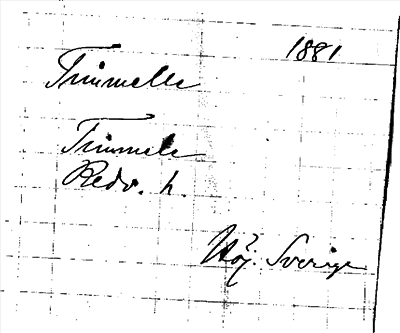 1881
Timmelle
Timmele
Redv. h.
Höj. Sverige